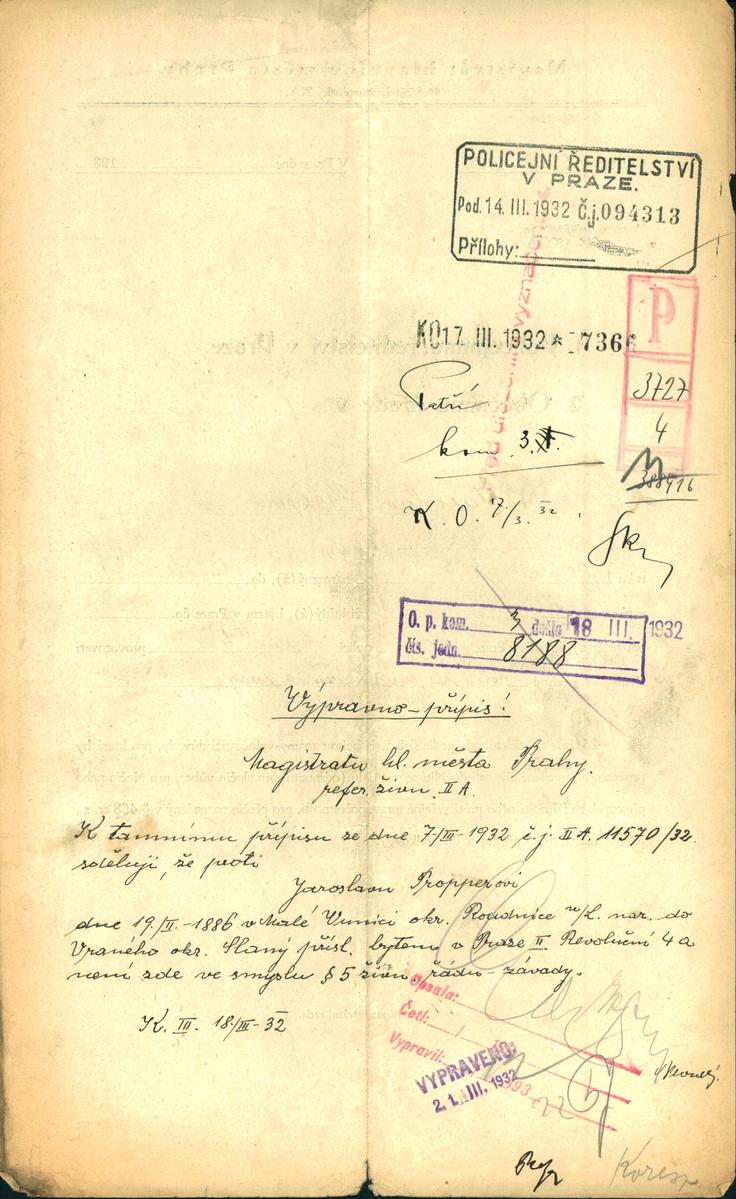 POLICEJNÍ ŘEDITELSTVÍ
V PRAZE.
Pod. 14. III. 1932 Č.j. 094313
Přílohy:
P
KO 17. III. 1932 * 7366
3727
4
kom. 3.
K. O. 17/3. 32.
O. p. kom. 3 došlo 18 III. 1932
čís. jedn. 8188
Výpravno-přípis!
Magistrátu hl. města Prahy.
refer. živn. II A.
K tamnímu přípisu ze dne 7/III-1932 č.j. II A. 11570/32.
sděluji, že proti
Jaroslavu Propperovi
dne 19./II.-1886 v Malé okr. Roudnice n/L. nar. do
Vraného okr. Slaný přísl. bytem v Praze II. Revoluční 4 a
není zde ve smyslu § 5 živn. řádu - závady.
K. III. 18/III-32
Opsala:
Četl:
Vypravil:
193
VYPRAVENO:
2 1. III. 1932